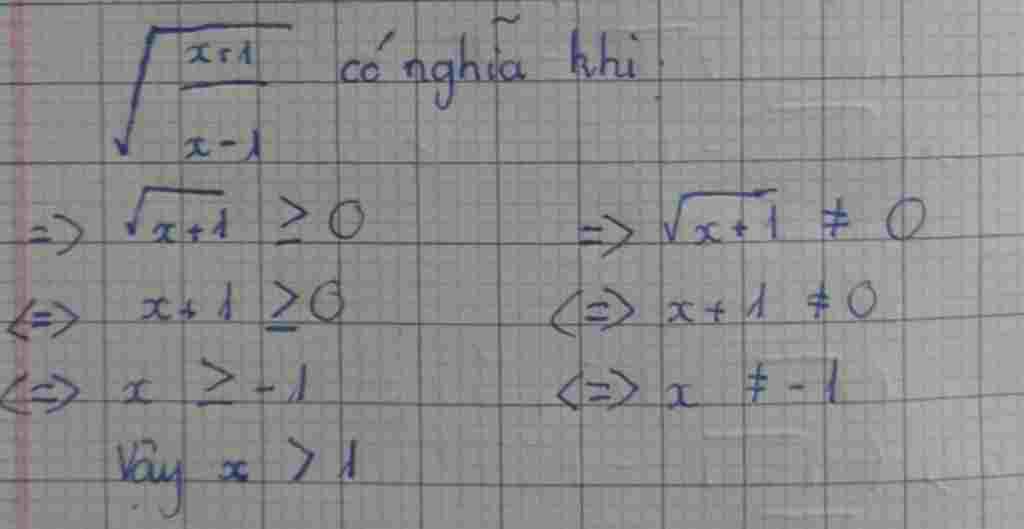 √(x+1 / x-1) có nghĩa khi
=> √x+1 ≥ 0 => √x+1 ≠ 0
<=> x+1 ≥ 0 <=> x+1 ≠ 0
<=> x ≥ -1 <=> x ≠ -1
Vậy x > 1